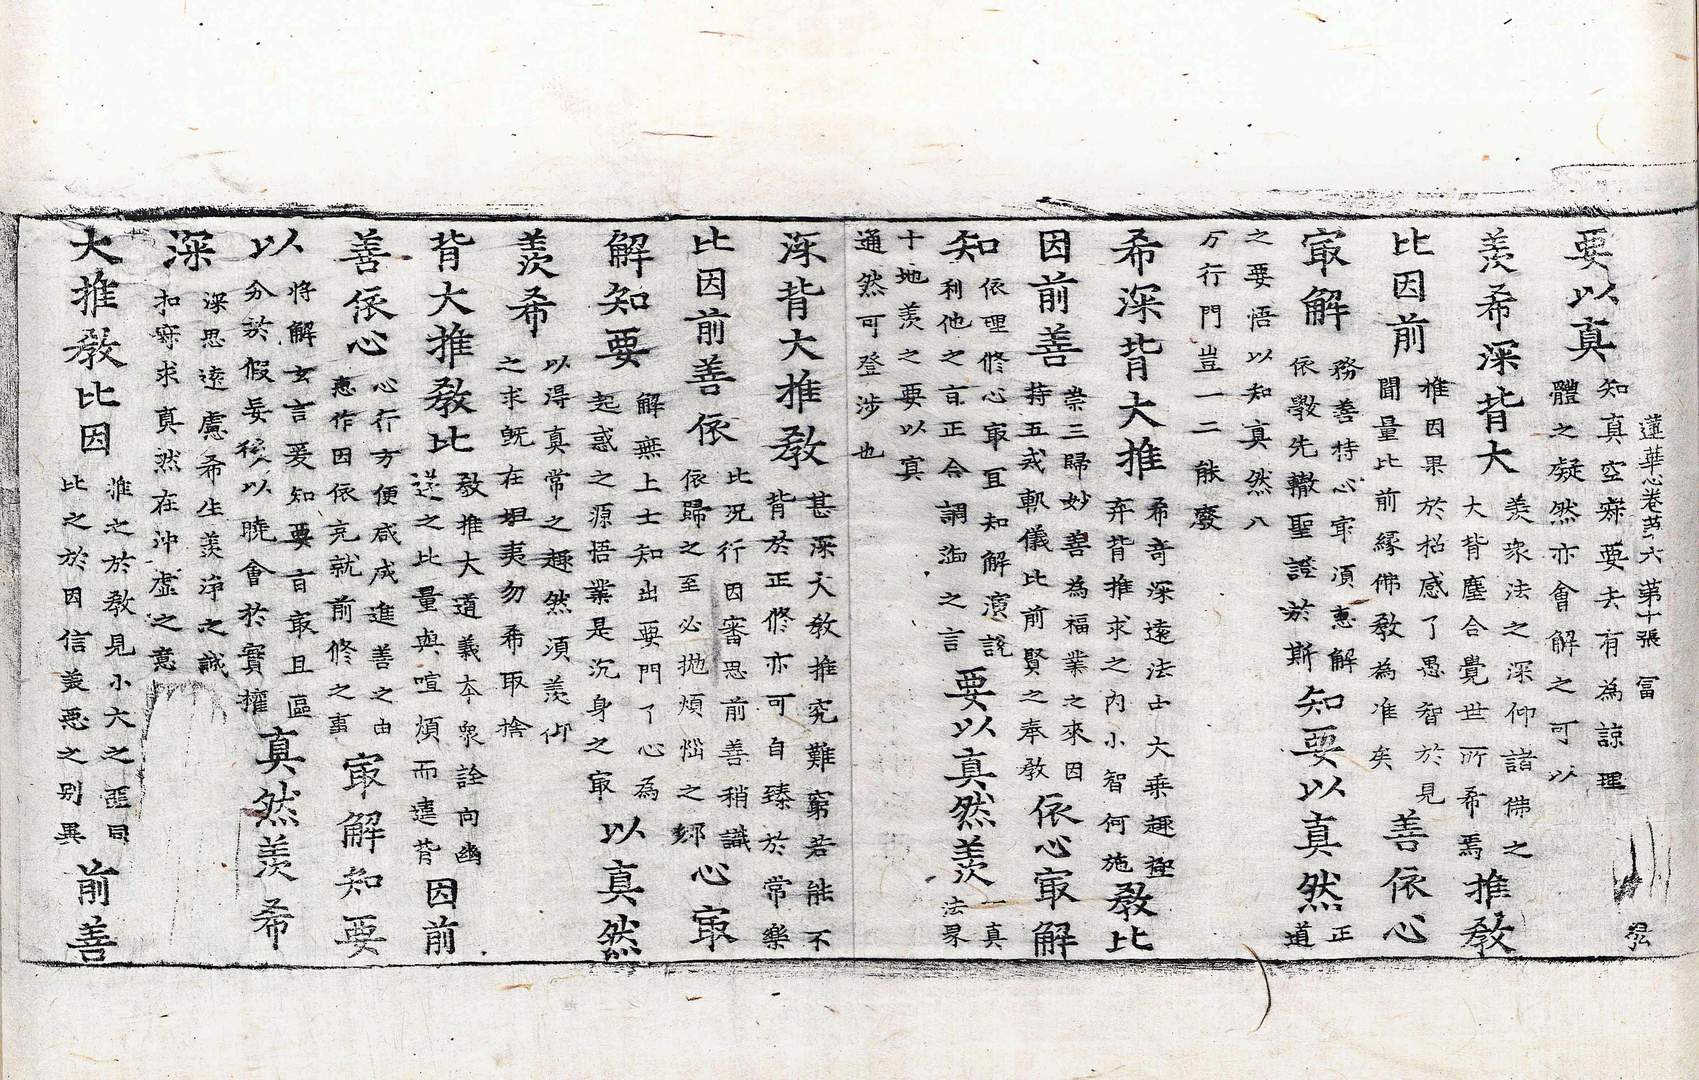 蓮華心卷苐六 苐十張 冨
要以真 知真空寂要去有為諒理
體之凝然亦會解之可以
羨希深背大 羨衆法之深仰諸佛之
大背塵合覺世所希焉 推教
比因前 推因果於招感了愚智於見
聞量比前緣佛教為准矣 善依心
㝡解 務善特心㝡湏惠解
依教先轍聖證於斯 知要以真然 正
道
之要悟以知真然八
万行門豈一二能廢
希深背大推 希奇深遠法士大乗趣極
弃背推求之內小智何施 教比
因前善 崇三歸妙善為福業之來因
持五戒軌儀比前賢之奉教 依心㝡解
知 依理修心㝡且知解演說
利他之言正合調滔之言 要以真然羨 一真
法界
十地羨之要以真
通然可登涉也
深背大推教 甚深大教推究難窮若能不
背於正修亦可自臻於常樂
比因前善依 比況行因審思前善稍識
依歸之至必抛煩惱之鄉 心㝡
解知要 解無上士知出要門了心為
起惑之源悟業是沉身之㝡 以真然
羨希 以得真常之趣然湏羨仰
之求旣在坦夷勿希取捨
背大推教比 教推大道義本衆詮向幽
送之比量與喧煩而違背 因前
善依心 心行方便咸成進善之由
惠作因依完就前修之事 㝡解知要
以 將解玄言爰知要旨㝡且區
分於假妄稱以曉會於實權 真然羨希
深 深思遠慮希生羨淨之誠
扣寂求真然在沖虛之意
大推教比因 推之於教見小大之匪同
比之於因信羨惡之別異 前善